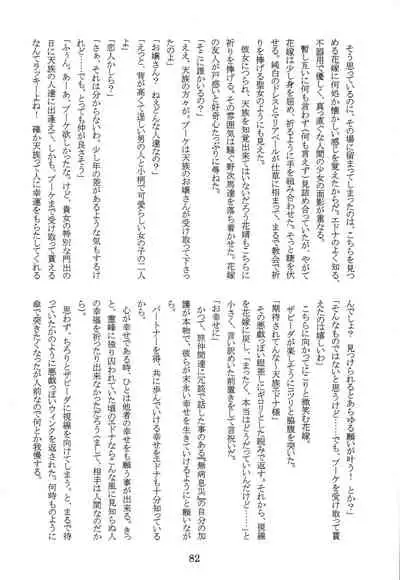 そう思っているのに、その場に留まってしまったのは、こちらを見つ
める花嫁に何処か懐かしい感じを覚えたからだ。エドナのよく知る、
不器用で優しく、真っ直ぐな人間の少女の面影が重なる。
暫し互いに何も言わず（何も言えず）見詰め合っていたが、やがて
花嫁は少し身を屈め、祈るように手を組み合わせた。そっと睫を伏
せる。純白のドレスとマリアベールが仕草に相まって、まるで教会で祈
りを捧げる聖女のようにも見えた。
彼女につられ、天族を知覚出来てはいないだろう花婿もこちらに
祈りを捧げる。その雰囲気は騒ぐ野次馬達を落ち着かせた。花嫁
の友人が戸惑いと好奇心たっぷりに尋ねた。
「そこに誰かいるの？」
「ええ、天族の方々が。ブーケは天族のお嬢さんが受け取って下さっ
たのよ」
「お嬢さん？ねえどんな人達なの？」
「えっと、背が高くて逞しい男の人と小柄で可愛らしい女の子の二人
よ」
「恋人かしら？」
「さぁ、それは分からないわ。少し年の差があるような気もするけ
れど……でも、とっても仲が良さそう」
「ふぅん。あーあ、ブーケ欲しかったな。けど、貴女の特別な門出の
日に天族の人達に出逢えて、しかも、ブーケまで受け取って貰える
なんてラッキーよね！　確か天族って人に幸運をもたらしてくれる
んでしょ。見つけられるとあらゆる願いが叶う！　とか？」
「そんなものではないと思うけど……でも、ブーケを受け取って貰
えたのは嬉しいわ」
こちらに向かってにこりと微笑む花嫁。
ザビーダが楽しそうにコツリと脇腹を突く。
「期待されてんな～天族エドナ様」
その悪戯っぽい碧茶ににギロリとした睨みで返す。それから、視線
を花嫁に戻し、「まったく、本当はどうだっていいんだけど……」と
小さく、言い訳めいた前置きをして言祝いだ。
「お幸せに」
かつて、旅仲間に冗談で話した事のある『無病息災』の自分の加
護が本物で、彼らが末永い幸せを生きていけるのならいいと願いなが
ら。
パートナーを得て、共に歩んでいける幸せをエドナも十分知ってい
る。
心が幸せである時、ひとは他者の幸せをも願う事が出来る。きっ
と、霊峰に独り囚われていた頃のエドナならこんな風に見知らぬ人
の幸福を祈ったり出来なかっただろう（まして、相手は人間なのだか
ら）。
思わず、ちらりとザビーダに視線を向けてしまう。と、まるで待
っていたかのように悪戯っぽいウィンクを返された。何時ものように
傘で突きたくなったが人前なので何とか我慢する。
82